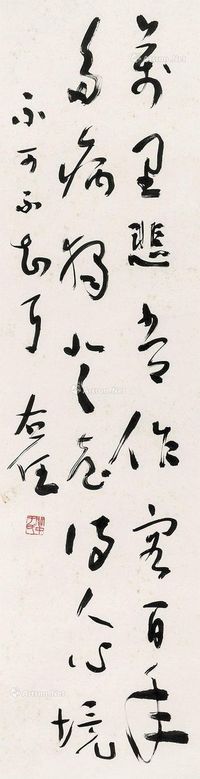 萬里悲常作客百年
多病獨登臺詩人心境
不可不知耳 右任
Artron.Net